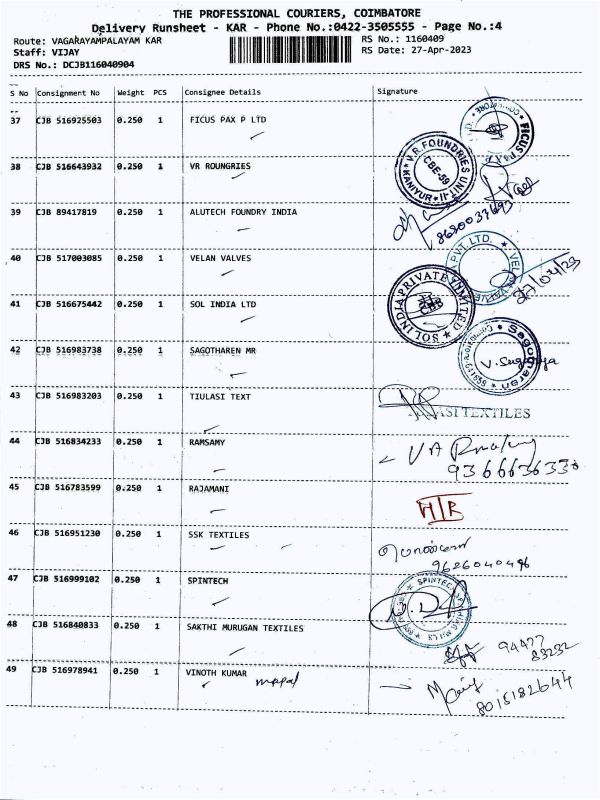 THE PROFESSIONAL COURIERS, COIMBATORE
Delivery Runsheet - KAR - Phone No.:0422-3505555 - Page No.:4
Route: VAGARAYAMPALAYAM KAR
RS No.: 1160409
Staff: VIJAY
RS Date: 27-Apr-2023
DRS No.: DCJB116040904
S No Consignment No Weight PCS Consignee Details Signature
37 CJB 516925503 0.250 1 FICUS PAX P LTD
FICUS PAX
38 CJB 516643932 0.250 1 VR ROUNGRIES
V.R.FOUNDRIES UNIT-II KANIYUR
CBE-59
39 CJB 89417819 0.250 1 ALUTECH FOUNDRY INDIA
40 CJB 517003085 0.250 1 VELAN VALVES
PVT.LTD.
27/04/23
41 CJB 516675442 0.250 1 SOL INDIA LTD
SOL INDIA PRIVATE LIMITED
CBB
42 CJB 516983738 0.250 1 SAGOTHAREN MR
V. Suganya
43 CJB 516983203 0.250 1 TIULASI TEXT
ASI TEXTILES
44 CJB 516834233 0.250 1 RAMSAMY
9366636330
45 CJB 516783599 0.250 1 RAJAMANI
46 CJB 516951230 0.250 1 SSK TEXTILES
9626040496
47 CJB 516999102 0.250 1 SPINTECH
SPINTECH
MILLS
48 CJB 516840833 0.250 1 SAKTHI MURUGAN TEXTILES
94427
83232
49 CJB 516978941 0.250 1 VINOTH KUMAR
8015182644